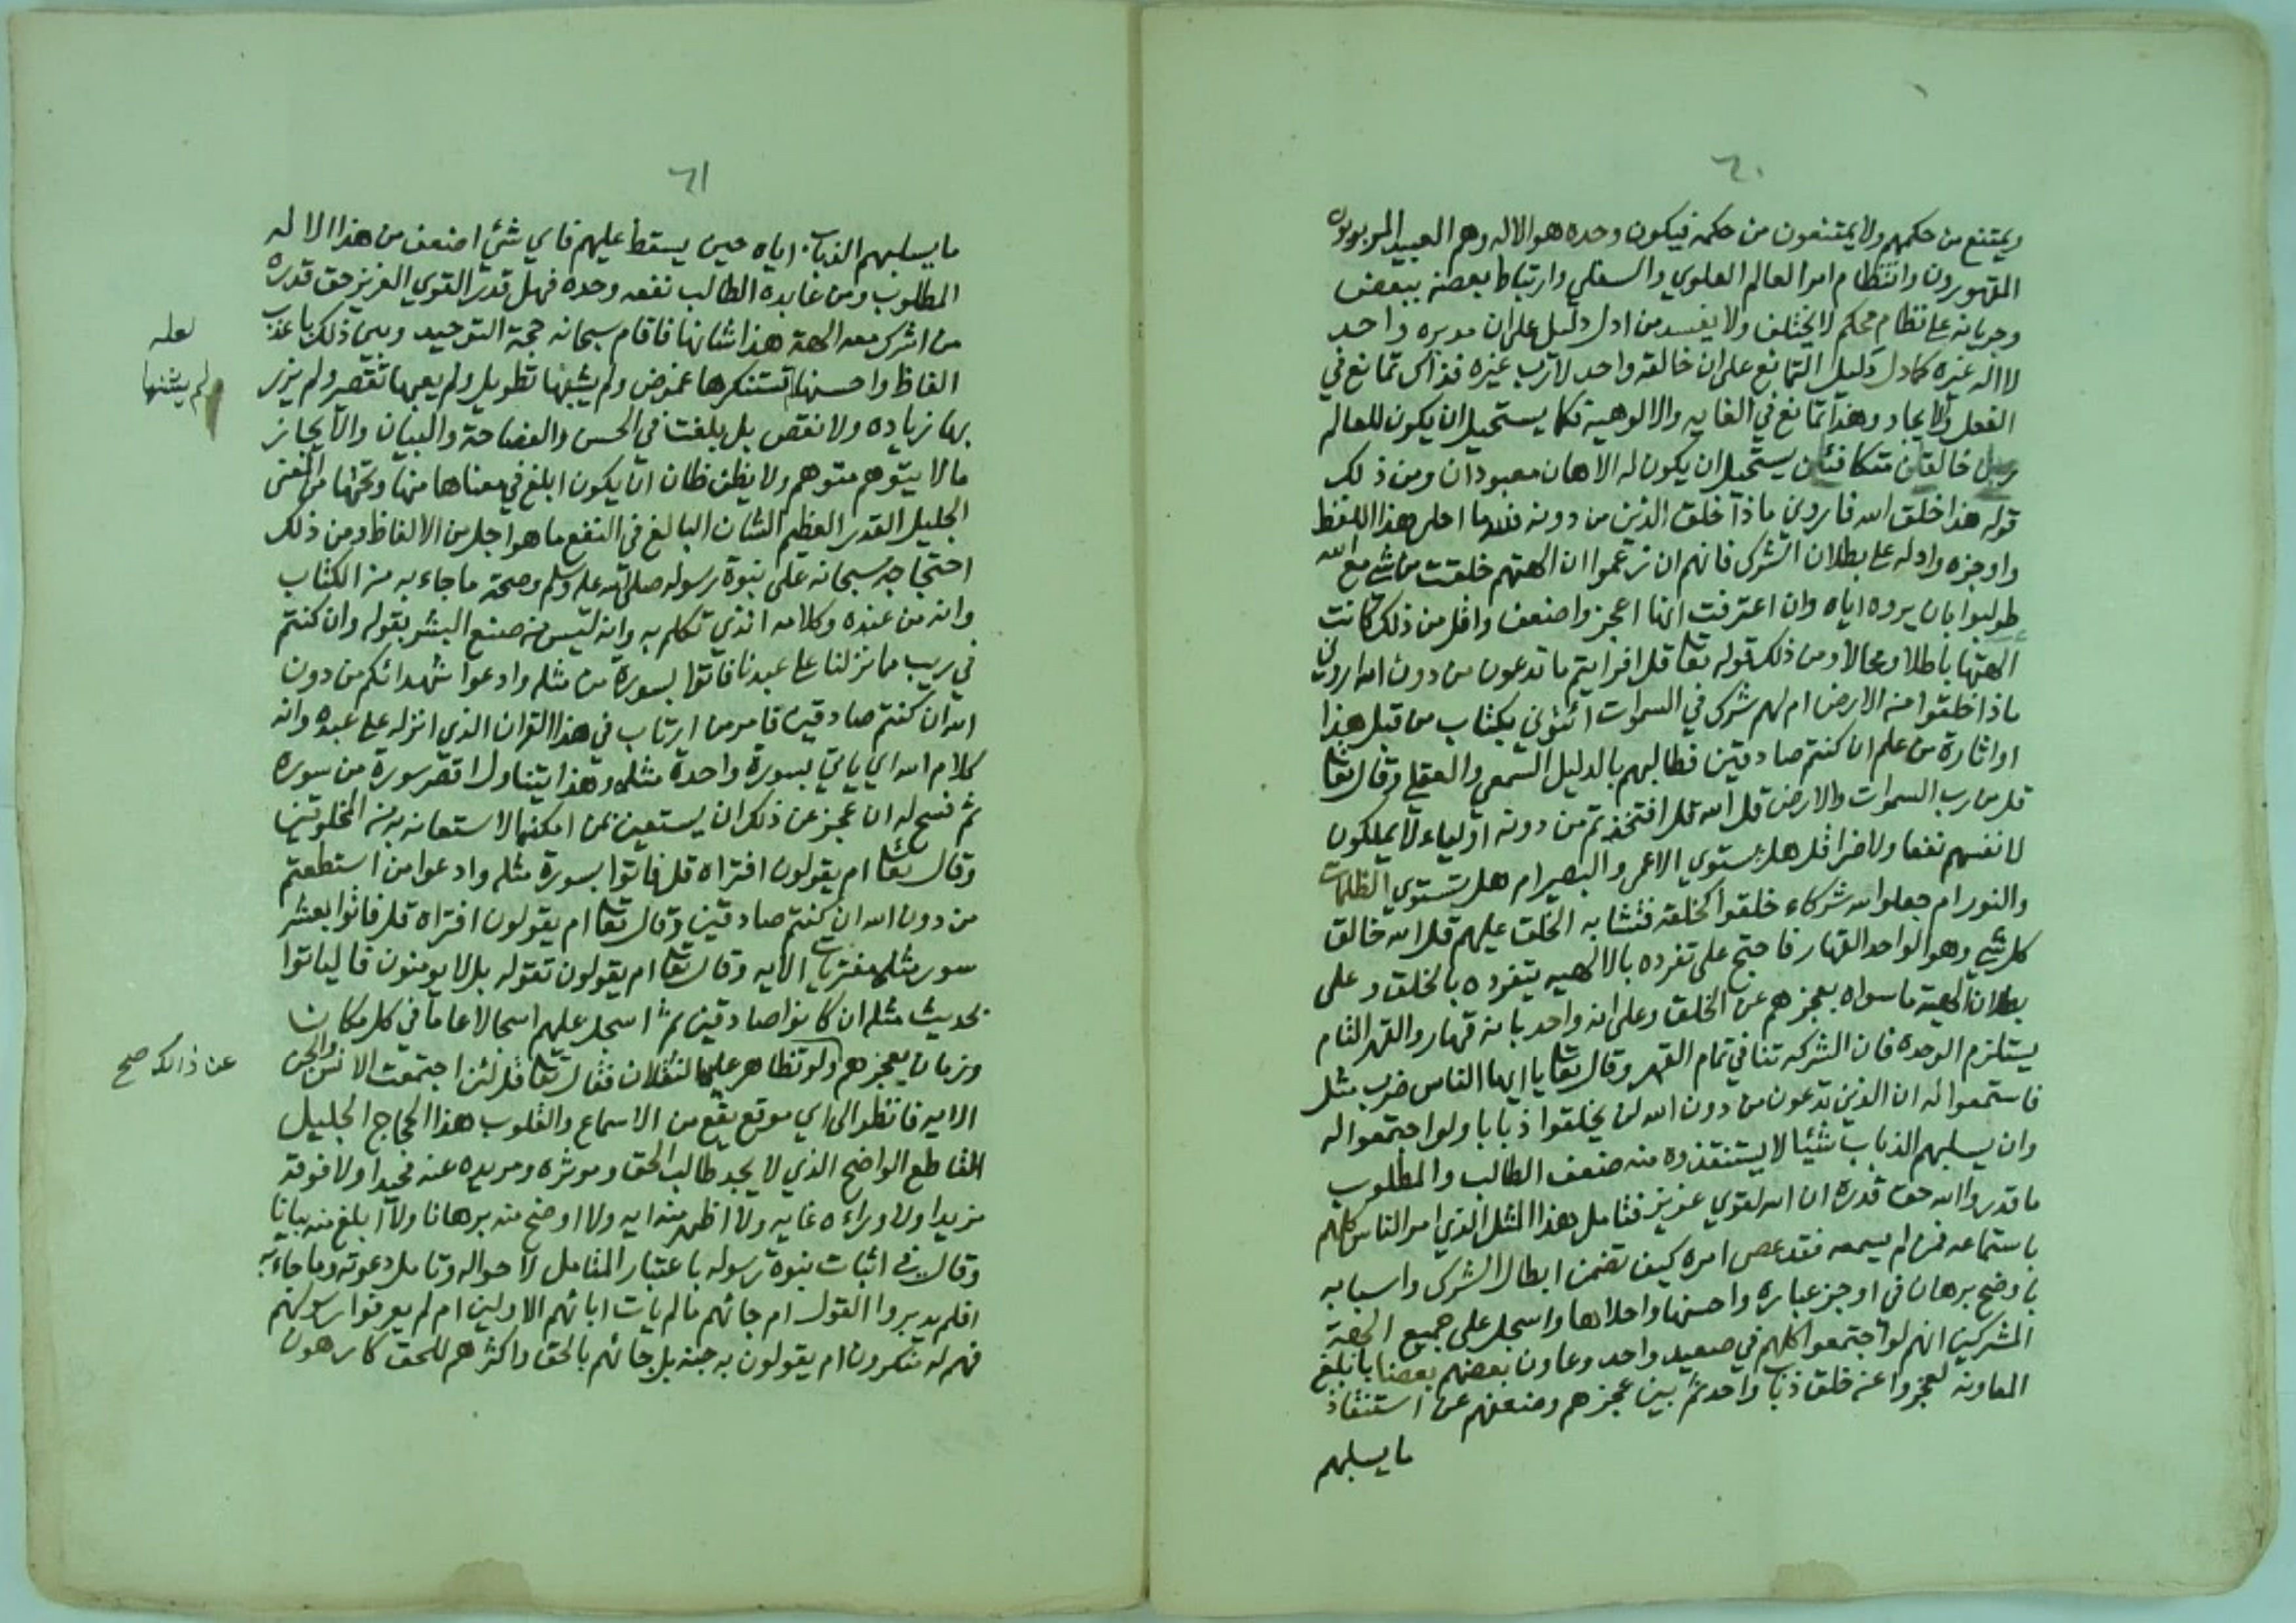 ٦٠
ويمتنع من حكمهم ولا يمتنعون من حكمه فيكون وحده هو الاله وهم العبيد المربوبون
المقهورون وانتظام امر العالم العلوي والسفلي وارتباط بعضه ببعض
وجريانه على نظام محكم لا يختلف ولا يفسد من ادل دليل على ان مدبره واحد
لا اله غيره كما دل دليل التمانع على ان خالقه واحد لا رب غيره فذاك تمانع في
الفعل والايجاد وهذا تمانع في الغايه والالوهية فكما يستحيل ان يكون للعالم
خالقان متكافئان يستحيل ان يكون له الاهان معبودان ومن ذلك
قوله هذا خلق الله فاروني ماذا خلق الذين من دونه فلله ما احلى هذا اللفظ
واوجزه وادله على بطلان الشرك فانهم ان زعموا ان الهتهم خلقت من شي مع الله
طولبوا بان يروه اياه وان اعترفت انها اعجز واضعف واقل من ذلك كانت
الهتها باطلا ومحالا ومن ذلك قوله تعا قل افرايتم ما تدعون من دون الله اروني
ماذا خلقوا من الارض ام لهم شرك في السموات ائتوني بكتاب من قبل هذا
او اثارة من علم ان كنتم صادقين فطالبهم بالدليل السمعي والعقلي وقال تعا
قل من رب السموات والارض قل الله قل افتخذتم من دونه اولياء لا يملكون
لانفسهم نفعا ولا ضرا قل هل يستوي الاعمى والبصير ام هل تستوي الظلمات
والنور ام جعلوا لله شركاء خلقوا كخلقه فتشابه الخلق عليهم قل الله خالق
كل شي وهو الواحد القهار فاحتج على تفرده بالالهيه بتفرده بالخلق وعلى
بطلان الهية ما سواه بعجزهم عن الخلق وعلى انه واحد بانه قهار والقهر التام
يستلزم الوحده فان الشركه تنافي تمام القهر وقال تعا يا ايها الناس ضرب مثل
فاستمعوا له ان الذين تدعون من دون الله لن يخلقوا ذبابا ولو اجتمعوا له
وان يسلبهم الذباب شئيا لا يستنقذوه منه ضعف الطالب والمطلوب
ما قدروا الله حق قدره ان الله لقوي عزيز فتامل هذا المثل الذي امر الناس كلهم
باستماعه فمن لم يسمعه فقد عصى امره كيف تضمن ابطال الشرك واسبابه
باوضح برهان في اوجز عباره واحسنها واحلاها واسجل على جميع الهة
المشركين انهم لو اجتمعوا كلهم في صعيد واحد وعاون بعضهم بعضا بابلغ
المعاونه لعجزوا عن خلق ذباب واحد ثم بين عجزهم وضعفهم عن استنقاذ
ما يسلبهم
٦١
ما يسلبهم الذباب اياه حين يسقط عليهم فاي شئي اضعف من هذا الاله
المطلوب ومن عابده الطالب نفعه وحده فهل قدر القوي العزيز حق قدره
من اشرك معه الهة هذا شانها فاقام سبحانه حجة التوحيد وبين ذلك باعذب
الفاظ واحسنها تستنكرها غموض ولم يشنها تطويل ولم يعبها تقصير ولم يزر
بها زياده ولا نقص بل بلغت في الحسن والفصاحة والبيان والايجاز
ما لا يتوهم متوهم ولا يظن ظان ان يكون ابلغ في معناها منها وتحتها من المعنى
الجليل القدر العظيم الشان البالغ في النفع ما هو اجل من الالفاظ ومن ذلك
احتجاجه سبحانه على نبوة رسوله صلى الله عليه وسلم وصحة ما جاء به من الكتاب
وانه من عنده وكلامه الذي تكلم به وانه ليس من صنع البشر بقوله وان كنتم
في ريب مما نزلنا على عبدنا فاتوا بسورة من مثله وادعوا شهدائكم من دون
الله ان كنتم صادقين فامر من ارتاب في هذا القران الذي انزله على عبده وانه
كلام الله اي ياتي بسورة واحدة مثله وهذا يتناول اقصر سورة من سوره
ثم فسح له ان عجز عن ذلك ان يستعين بمن امكنه الاستعانه به من المخلوقين
وقال تعا ام يقولون افتراه قل فاتوا بسورة مثله وادعوا من استطعتم
من دون الله ان كنتم صادقين وقال تعا ام يقولون افتراه قل فاتوا بعشر
سور مثله مفتريات الايه وقال تعا ام يقولون تقوله بل لا يومنون فالياتوا
بحديث مثله ان كانوا صادقين ثم اسجل عليهم اسجالا عاما في كل مكان
وزمان بعجزهم ولو تظاهر عليه الثقلان فقال تعا قل لئن اجتمعت الانس والجن
الايه فانظر الى اي موقع يقع من الاسماع والقلوب هذا الحجاج الجليل
القاطع الواضح الذي لا يجد طالب الحق وموثره ومريده عنه محيدا ولا فوقه
مزيدا ولا وراءه غايه ولا اظهر منه ايه ولا اوضح منه برهانا ولا ابلغ منه بيانا
وقال في اثبات نبوة رسوله باعتبار المتامل لاحواله وتامل دعوته وما جاء به
افلم يدبروا القول ام جائهم ما لم يات ابائهم الاولين ام لم يعرفوا رسولهم
فهم له منكرون ام يقولون به جنه بل جائهم بالحق واكثرهم للحق كارهون
لعله
لم يشنها
عن ذالك صح